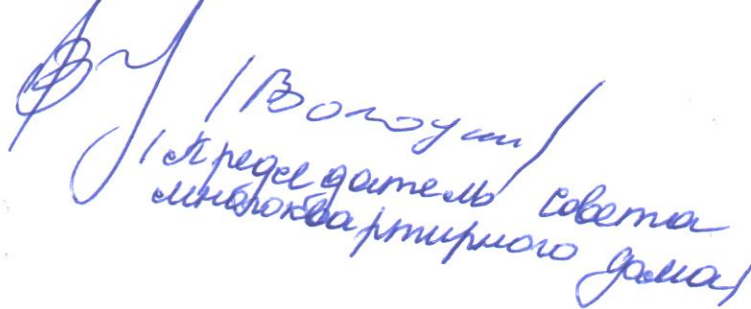 /Председатель совета
многоквартирного дома/